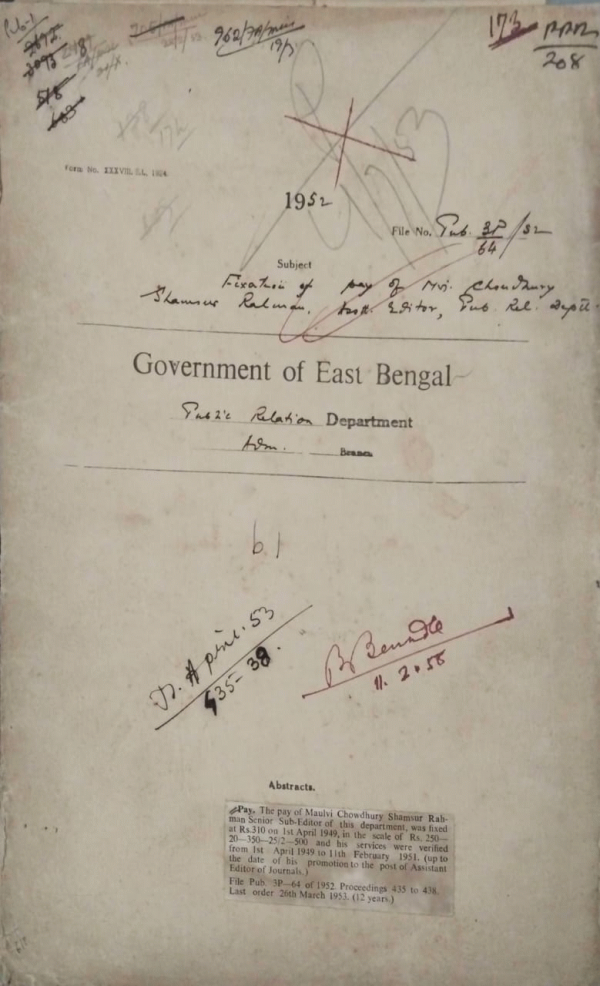 962/
173
208
Form No. XXXVIII. G.L. 1924.
1952
File No. Pub. 3P/52
64
Subject
Fixation of pay of Mvi. Chowdhury
Shamsur Rahman, Asst. Editor, Pub. Rel. Deptt.
Government of East Bengal
Public Relation Department
Adm. Branch
b1
April. 53
435-38.
B Bundle
11.2.58
Abstracts.
Pay. The pay of Maulvi Chowdhury Shamsur Rah-
man Senior Sub-Editor of this department, was fixed
at Rs.310 on 1st April 1949, in the scale of Rs. 250—
20—350—25/2—500 and his services were verified
from 1st April 1949 to 11th February 1951. (up to
the date of his promotion to the post of Assistant
Editor of Journals.)
File Pub. 3P—64 of 1952. Proceedings 435 to 438.
Last order 26th March 1953. (12 years.)